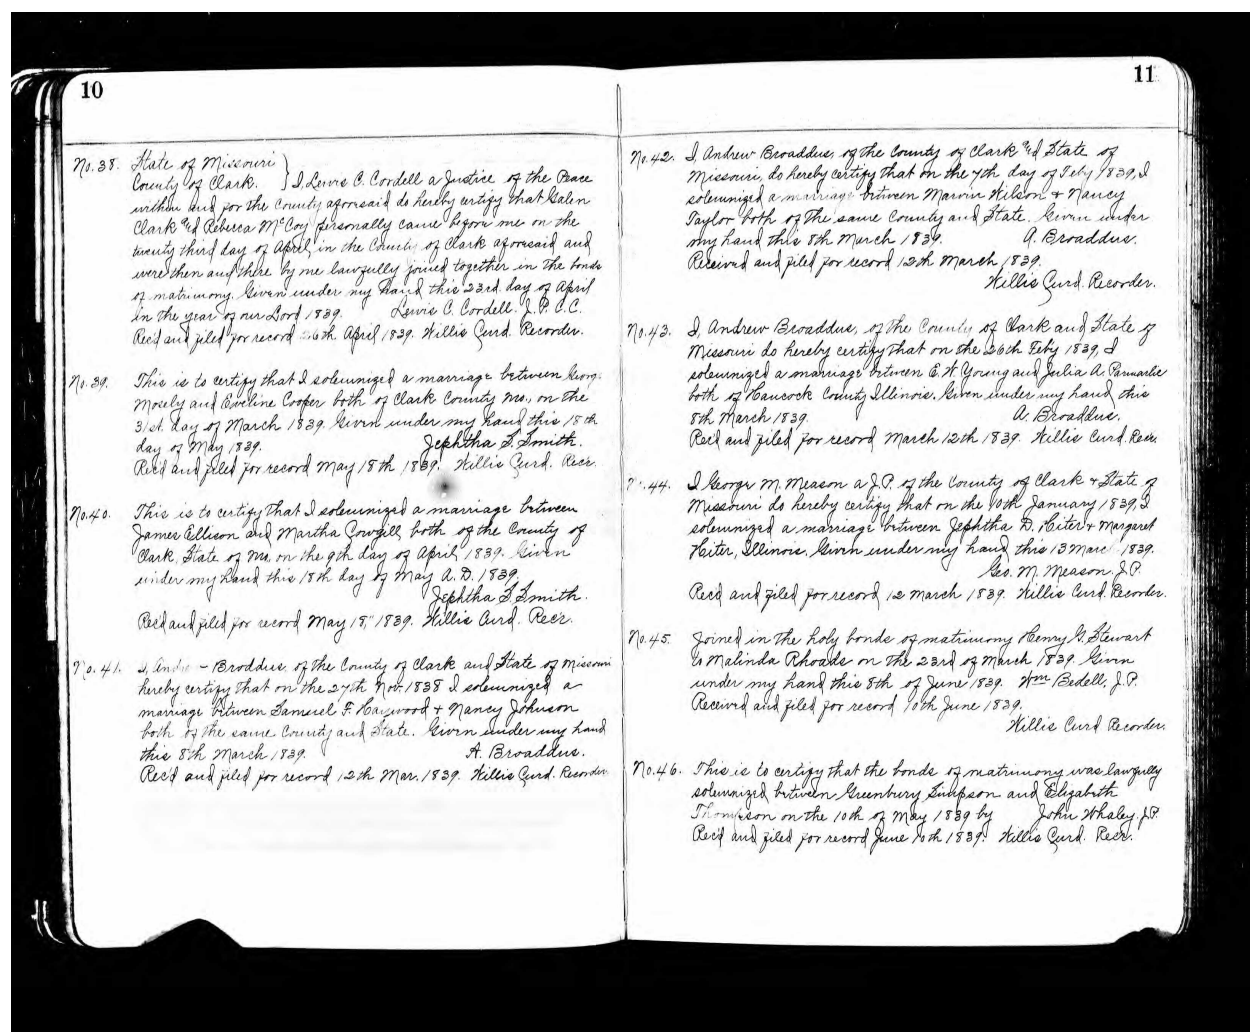 10
No. 38. State of Missouri
County of Clark. } I, Lewis C. Cordell a Justice of the Peace
within and for the County aforesaid do hereby certify that Galen
Clark and Rebecca McCoy personally came before me on the
twenty third day of April, in the County of Clark aforesaid and
were then and there by me lawfully joined together in the bonds
of matrimony. Given under my hand this 23rd. day of April
in the year of our Lord 1839. Lewis C. Cordell. J.P.C.C.
Rec'd and filed for record 26th April 1839. Willis Curd. Recorder.
No. 39. This is to certify that I solemnized a marriage between Georg.
Mosely and Eveline Cooper both of Clark County Mo., on the
31st. day of March 1839. Given under my hand this 18th
day of May 1839. Jephtha S. Smith.
Rec'd and filed for record May 18th 1839. Willis Curd. Recr.
No. 40. This is to certify that I solemnized a marriage between
James Ellison and Martha Cowgill both of the County of
Clark, State of Mo. on the 9th day of April 1839. Given
under my hand this 18th day of May A.D. 1839.
Jephtha S. Smith.
Rec'd and filed for record May 18," 1839. Willis Curd. Rec'r.
No. 41. I, Andre - Broddus, of the County of Clark and State of Missouri
hereby certify that on the 27th Nov. 1838 I solemnized a
marriage between Samuel F. Haywood + Nancy Johnson
both of the same County and State. Given under my hand
this 8th March 1839. A. Broaddus.
Rec'd and filed for record 12th Mar. 1839. Willis Curd. Recorder
11
No. 42. I, Andrew Broaddus, of the County of Clark and State of
Missouri, do hereby certify that on the 7th day of Feby 1839, I
solemnized a marriage between Marvin Wilson + Nancy
Taylor both of the same County and State. Given under
my hand this 8th March 1839. A. Broaddus.
Received and filed for record 12th March 1839.
Willis Curd. Recorder.
No. 43. I, Andrew Broaddus, of the County of Clark and State of
Missouri do hereby certify that on the 26th Feby 1839, I
solemnized a marriage between E. W. Young and Julia A.
both of Hancock County Illinois. Given under my hand this
8th March 1839. A. Broaddus.
Rec'd and filed for record March 12th 1839. Willis Curd. Recr.
44. I George M. Meason a J.P. of the County of Clark + State of
Missouri do hereby certify that on the 10th January 1839, I
solemnized a marriage between Jephtha D. Hiter + Margaret
Hiter, Illinois. Given under my hand this 13 Marc 1839.
Geo. M. Meason. J.P.
Rec'd and filed for record 12 March 1839. Willis Curd. Recorder.
No. 45. Joined in the holy bonds of matrimony Henry G. Stewart
to Malinda Rhoads on the 23rd of March 1839. Given
under my hand this 8th of June 1839. Wm Bedell, J.P.
Received and filed for record 10th June 1839.
Willis Curd Recorder.
No. 46. This is to certify that the bonds of matrimony was lawfully
solemnized between Greenbury Simpson and Elizabeth
Thompson on the 10th of May 1839 by John Whaley. J.P.
Rec'd and filed for record June 10th 1839. Willis Curd. Recr.